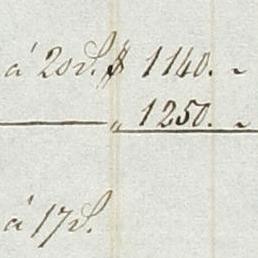 á 20 S. $ 1140. -
" 1250. -
á 17 S.